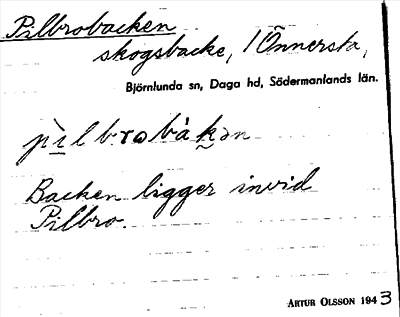 Pilbrobacken
skogsbacke, / Önnersta,
Björnlunda sn, Daga hd, Södermanlands län.
Backen ligger invid
Pilbro.
ARTUR OLSSON 1943